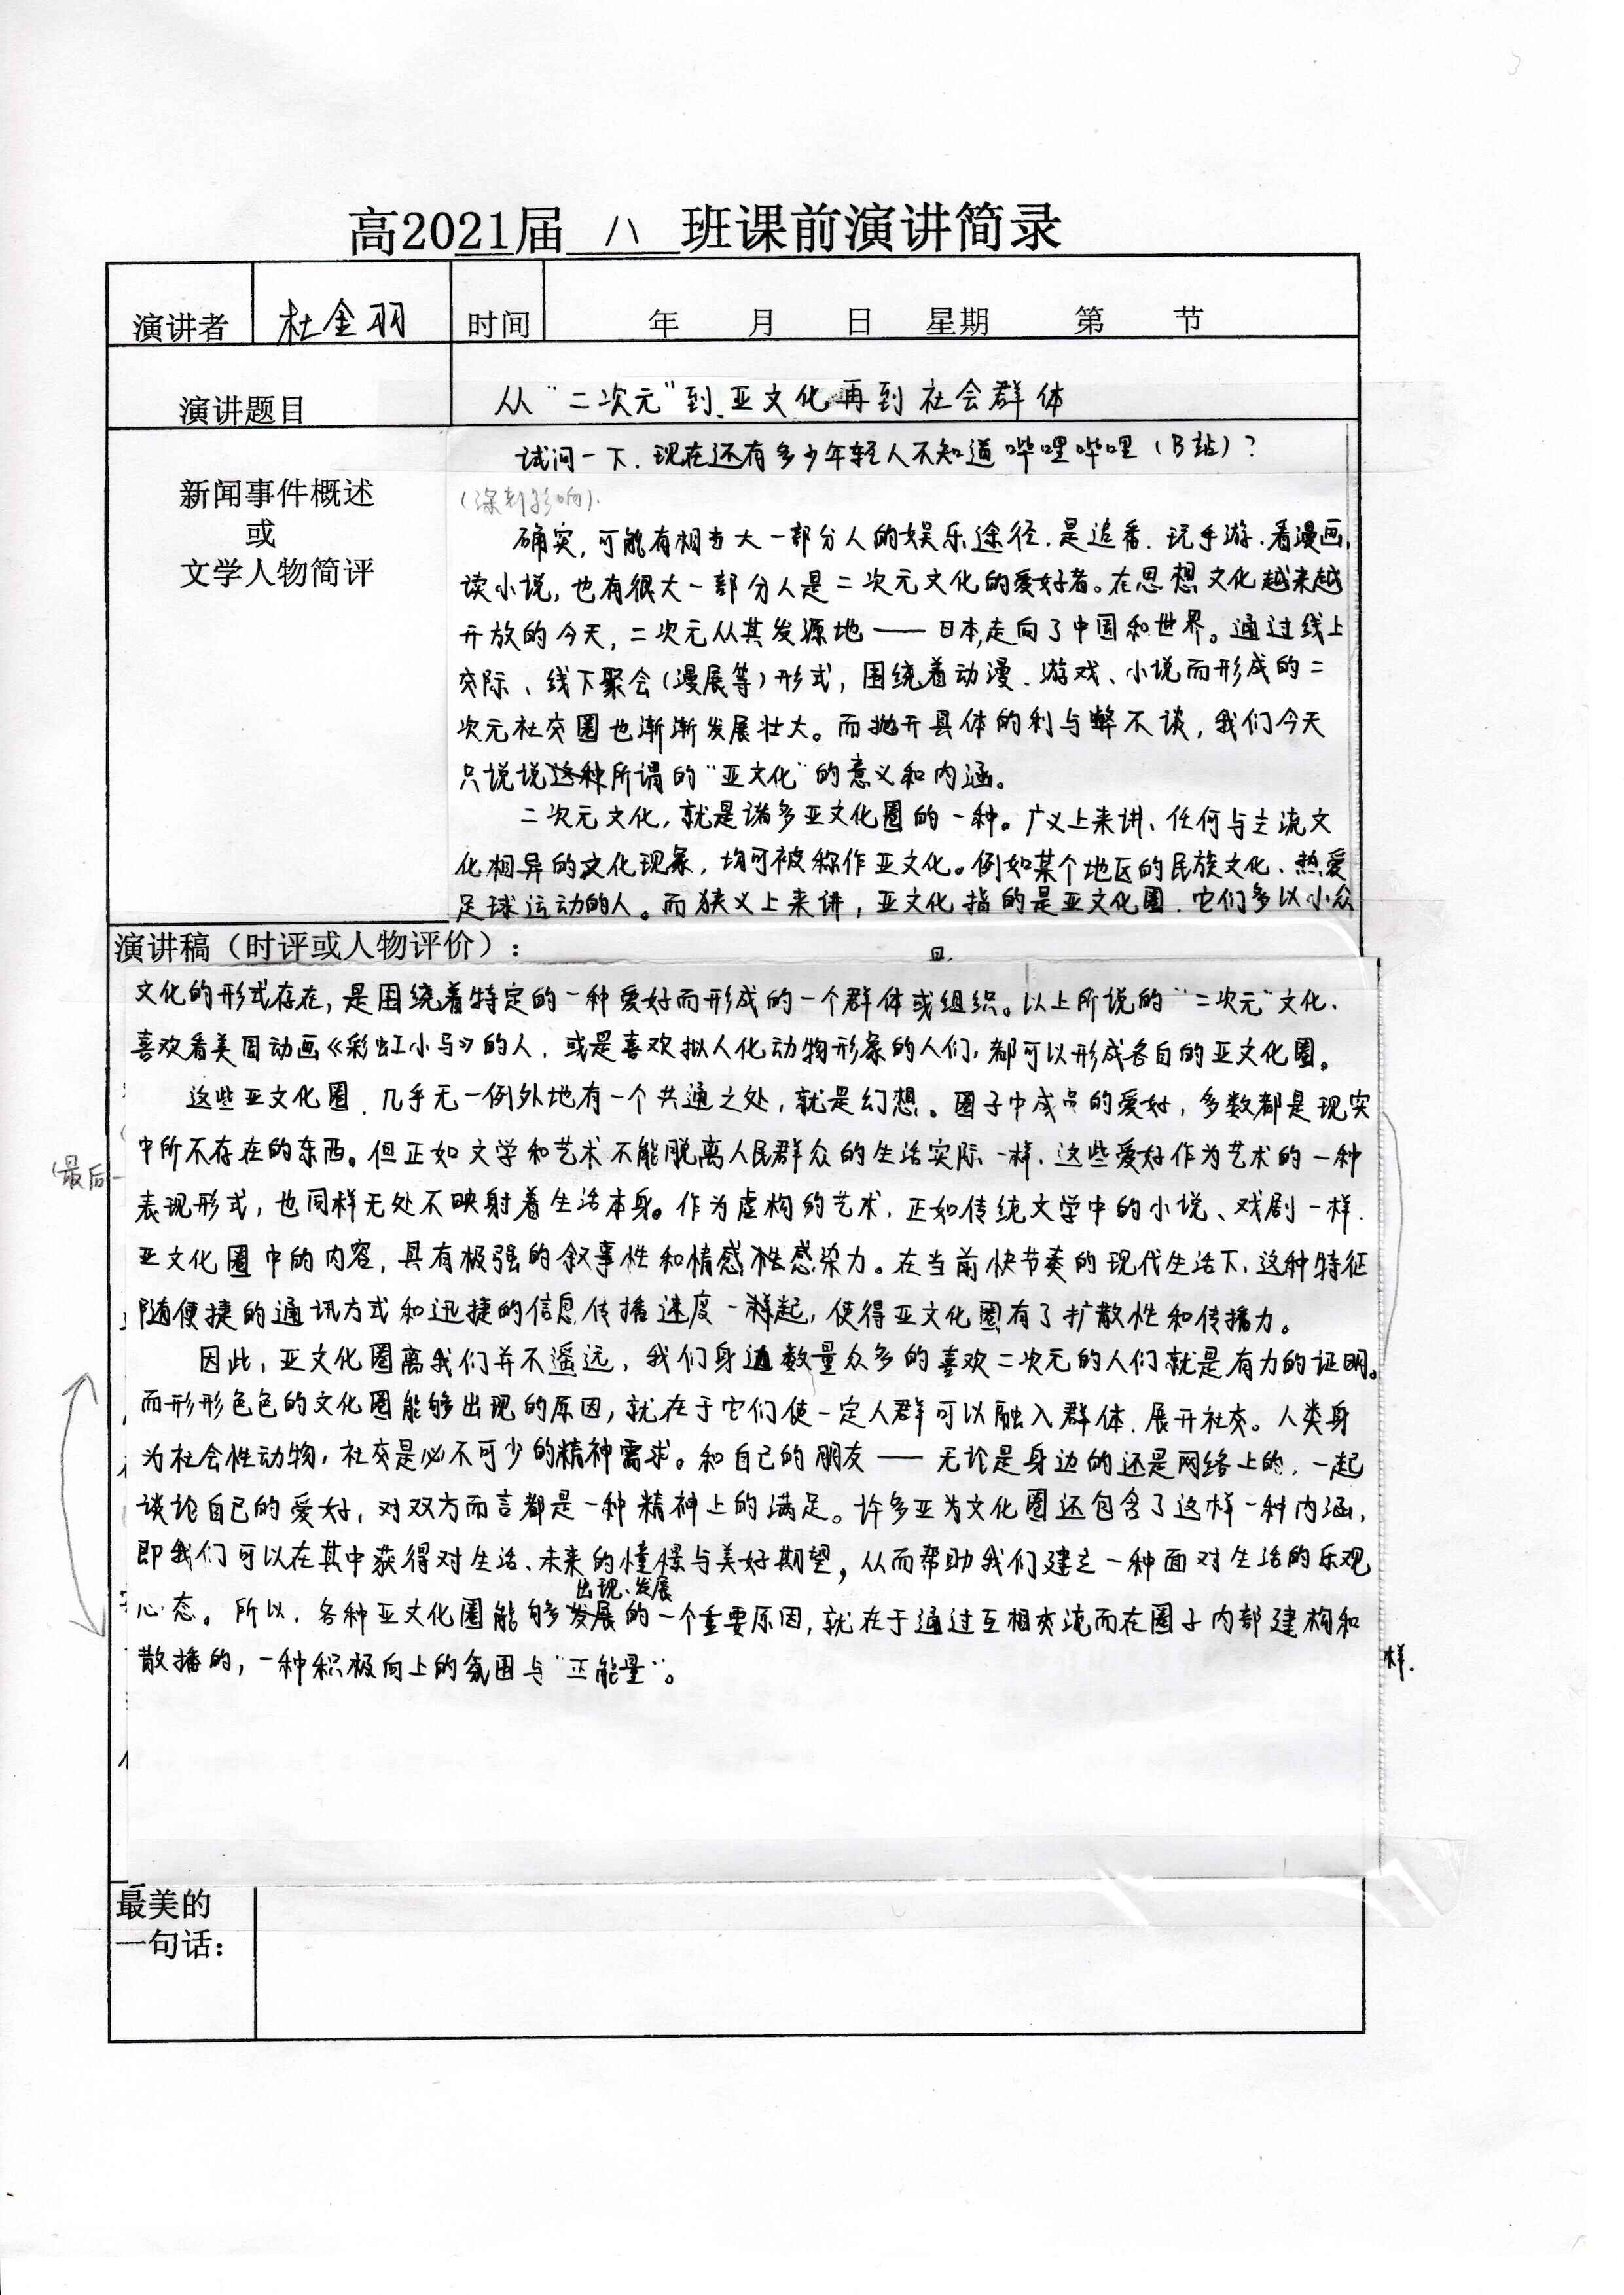 高2021届 八 班课前演讲简录
演讲者 杜金羽 时间 年 月 日 星期 第 节
演讲题目 从“二次元”到亚文化再到社会群体
新闻事件概述
或
文学人物简评
试问一下,现在还有多少年轻人不知道哔哩哔哩(B站)?
(深刻影响).
确实,可能有相当大一部分人的娱乐途径,是追番、玩手游、看漫画、
读小说,也有很大一部分人是二次元文化的爱好者。在思想文化越来越
开放的今天,二次元从其发源地——日本,走向了中国和世界。通过线上
交际、线下聚会(漫展等)形式,围绕着动漫、游戏、小说而形成的二
次元社交圈也渐渐发展壮大。而抛开具体的利与弊不谈,我们今天
只说说这种所谓的“亚文化”的意义和内涵。
二次元文化,就是诸多亚文化圈的一种。广义上来讲、任何与主流文
化相异的文化现象,均可被称作亚文化。例如某个地区的民族文化、热爱
足球运动的人。而狭义上来讲,亚文化指的是亚文化圈,它们多以小众
演讲稿(时评或人物评价):
文化的形式存在,是围绕着特定的一种爱好而形成的一个群体或组织。以上所说的“二次元”文化、
喜欢看美国动画《彩虹小马》的人,或是喜欢拟人化动物形象的人们,都可以形成各自的亚文化圈。
这些亚文化圈,几乎无一例外地有一个共通之处,就是幻想。圈子中成员的爱好,多数都是现实
中所不存在的东西。但正如文学和艺术不能脱离人民群众的生活实际一样,这些爱好作为艺术的一种
(最后
表现形式,也同样无处不映射着生活本身。作为虚构的艺术,正如传统文学中的小说、戏剧一样,
亚文化圈中的内容,具有极强的叙事性和情感性感染力。在当前快节奏的现代生活下,这种特征
随便捷的通讯方式和迅捷的信息传播速度一起,使得亚文化圈有了扩散性和传播力。
因此,亚文化圈离我们并不遥远,我们身边数量众多的喜欢二次元的人们就是有力的证明。
而形形色色的文化圈能够出现的原因,就在于它们使一定人群可以融入群体,展开社交。人类身
为社会性动物,社交是必不可少的精神需求。和自己的朋友——无论是身边的还是网络上的,一起
谈论自己的爱好,对双方而言都是一种精神上的满足。许多亚为文化圈还包含了这样一种内涵,
即我们可以在其中获得对生活、未来的憧憬与美好期望,从而帮助我们建立一种面对生活的乐观
出现、发展
心态。所以,各种亚文化圈能够发展的一个重要原因,就在于通过互相交流而在圈子内部建构和
散播的,一种积极向上的氛围与“正能量”。
样.
最美的
一句话: